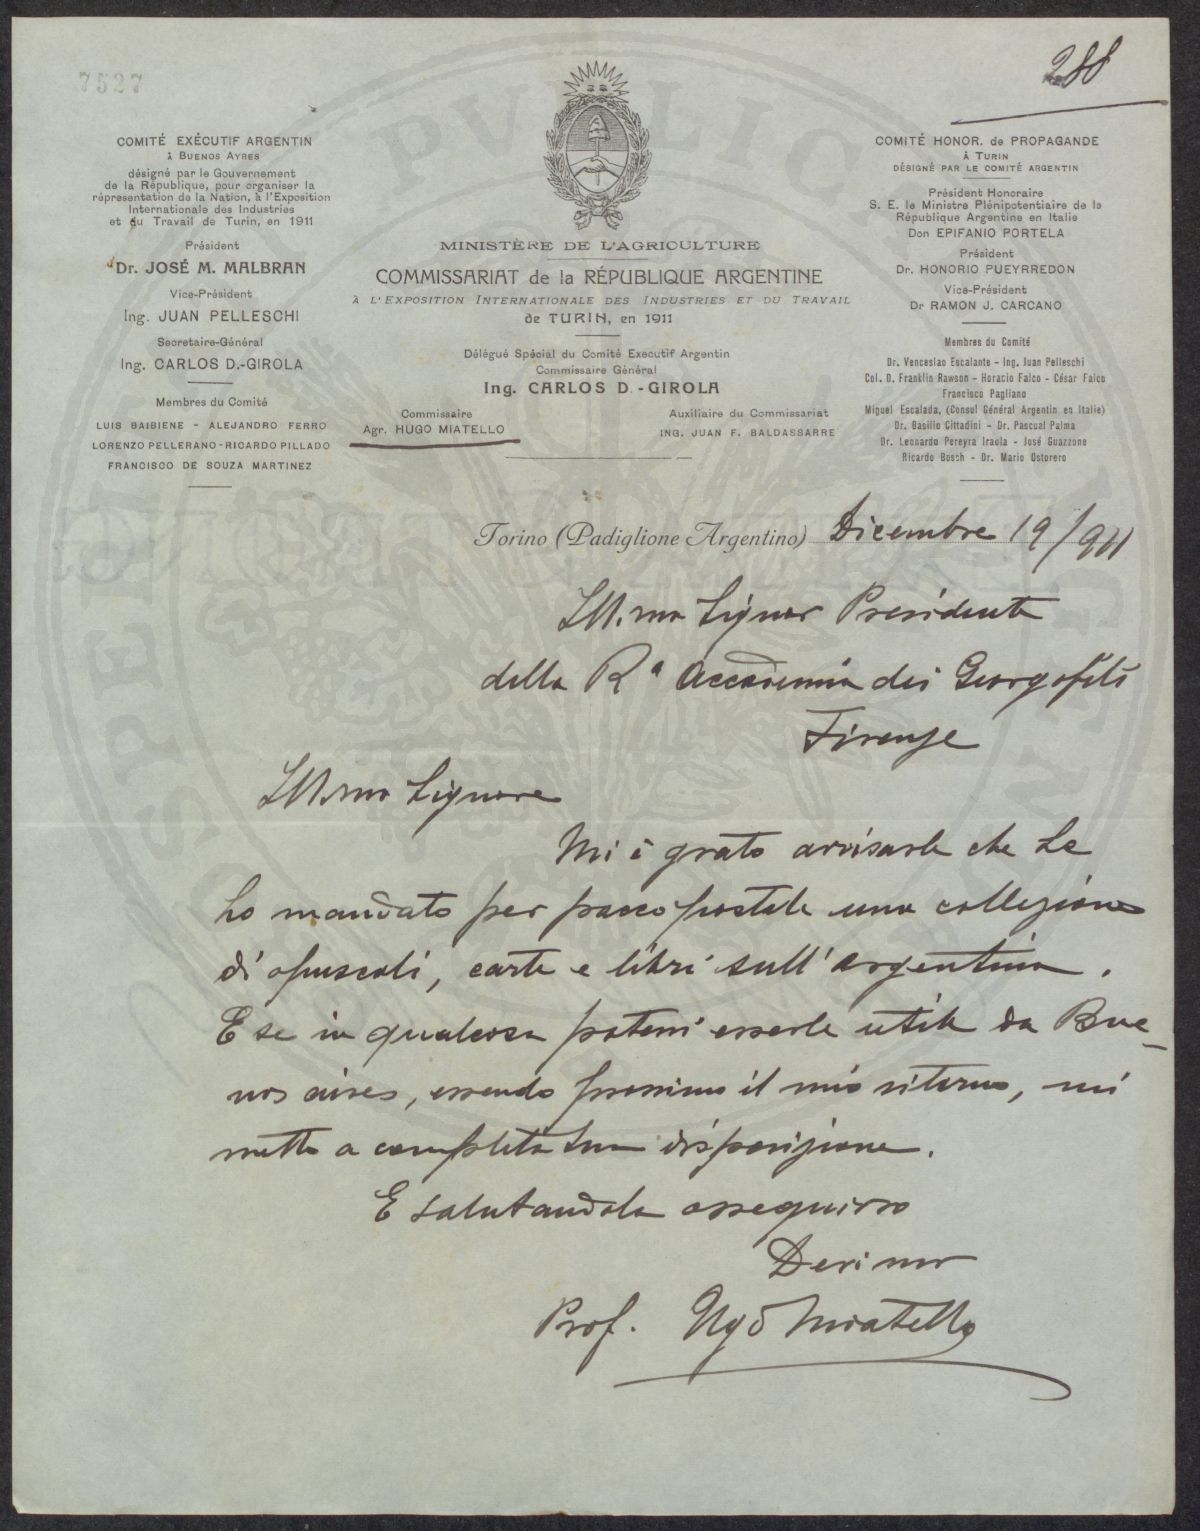 7527
288
COMITÉ EXÉCUTIF ARGENTIN
À BUENOS AYRES
désigné par le Gouvernement
de la République, pour organiser la
réprésentation de la Nation, à l'Exposition
Internationale des Industries
et du Travail de Turin, en 1911
Président
Dr. JOSÉ M. MALBRAN
Vice-Président
Ing. JUAN PELLESCHI
Secretaire-Général
Ing. CARLOS D.-GIROLA
Membres du Comité
LUIS BAIBIENE - ALEJANDRO FERRO
LORENZO PELLERANO - RICARDO PILLADO
FRANCISCO DE SOUZA MARTINEZ
MINISTÈRE DE L'AGRICULTURE
COMMISSARIAT de la RÉPUBLIQUE ARGENTINE
À L'EXPOSITION INTERNATIONALE DES INDUSTRIES ET DU TRAVAIL
de TURIN, en 1911
Délégué Spécial du Comité Executif Argentin
Commissaire Général
Ing. CARLOS D. - GIROLA
Commissaire
Agr. HUGO MIATELLO
Auxiliaire du Commissariat
ING. JUAN F. BALDASSARRE
COMITÉ HONOR. de PROPAGANDE
À TURIN
DÉSIGNÉ PAR LE COMITÉ ARGENTIN
Président Honoraire
S. E. le Ministre Plénipotentiaire de la
République Argentine en Italie
Don EPIFANIO PORTELA
Président
Dr. HONORIO PUEYRREDON
Vice-Président
Dr RAMON J. CARCANO
Membres du Comité
Dr. Venceslao Escalante - Ing. Juan Pelleschi
Col. D. Franklin Rawson - Horacio Falco - César Falco
Francisco Pagliano
Miguel Escalada, (Consul Général Argentin en Italie)
Dr. Basilio Cittadini - Dr. Pascual Palma
Dr. Leonardo Pereyra Iraola - José Guazzone
Ricardo Bosch - Dr. Mario Ostorero
Torino (Padiglione Argentino) Dicembre 19/911
Ill.mo Signor Presidente
della Rª Accademia dei Georgofili
Firenze
Ill.mo Signore
Mi è grato avvisarle che Le
ho mandato per pacco postale una collezione
di opuscoli, carte e libri sull'Argentina.
E se in qualcosa potessi esserle utile da Bue-
nos aires, essendo prossimo il mio ritorno, mi
metto a completa Sua disposizione.
E salutandola ossequioso
Devi.mo
Prof. Ugo Miatello